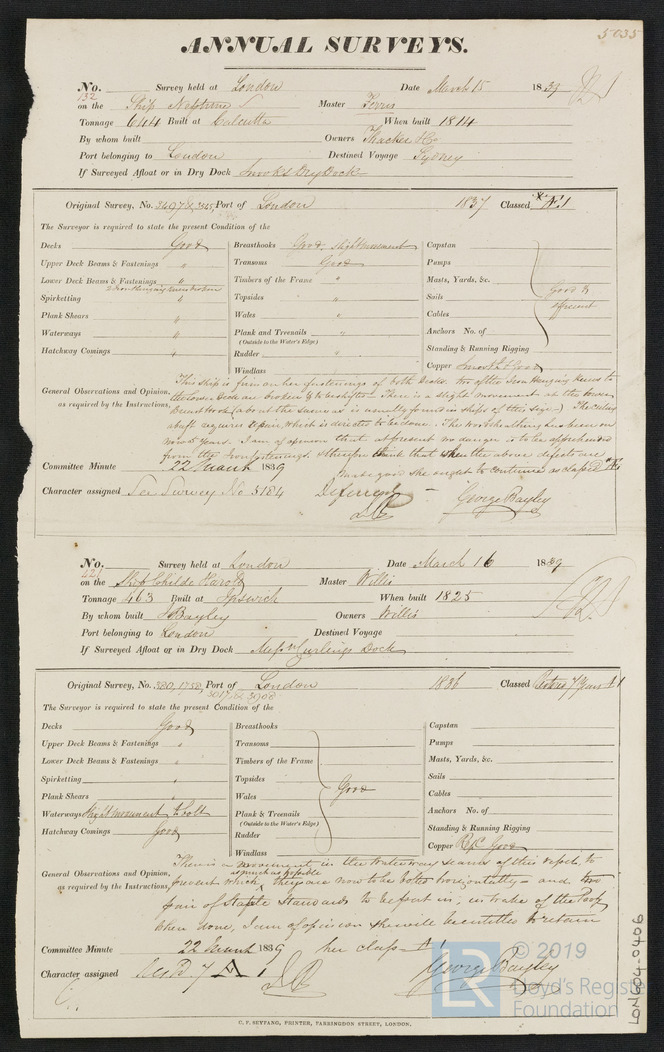 5035
ANNUAL SURVEYS.
No. 132 Survey held at London Date March 15 1839
on the Ship Neptune Master Ferris
Tonnage 644 Built at Calcutta When built 1814
By whom built Owners Thacker & Co
Port belonging to London Destined Voyage Sydney
If Surveyed Afloat or in Dry Dock Snooks Dry Dock
Original Survey, No. Port of London 1837 Classed Æ 1
The Surveyor is required to state the present Condition of the
Decks Good Breasthooks Good, slight movement Capstan
Upper Deck Beams & Fastenings " Transoms Good Pumps
Lower Deck Beams & Fastenings " Timbers of the Frame " Masts, Yards, &c.
2 Iron Hanging Knees broken
Spirketting " Topsides " Sails Good &
Plank Shears " Wales " Cables efficient
Waterways " Plank and Treenails " Anchors No. of
(Outside to the Water's Edge)
Hatchway Comings " Rudder " Standing & Running Rigging
Windlass Copper Smooth & Good
General Observations and Opinion, as required by the Instructions,
This ship is firm in her fastenings of both Decks. two of the Iron Hanging Knees to
the lower Deck are broken & to be shifted. There is a slight movement at the lower
Breast hook (as usually found in ships of this age.) The
abuft requires repair, which is directed to be done. The Wood sheathing has been on
now 5 Years. I am of opinion that at present no danger is to be apprehended
from the Iron fastenings & therefore think that when the above defects are
made good she ought to continue as classed Æ 1
Committee Minute 22 March 1839
Character assigned See Survey No 5184 Deferred George Bayley
No. 421 Survey held at London Date March 16 1839
on the Ship Childe Harold Master Willis
Tonnage 463 Built at Ipswich When built 1825
By whom built Bayley Owners Willis
Port belonging to London Destined Voyage
If Surveyed Afloat or in Dry Dock Mess Curlings Dock
Original Survey, No. Port of London 1836 Classed 7 Years A 1
3017 & 3908
The Surveyor is required to state the present Condition of the
Decks Good Breasthooks Capstan
Upper Deck Beams & Fastenings " Transoms Pumps
Lower Deck Beams & Fastenings " Timbers of the Frame Masts, Yards, &c.
Spirketting " Topsides Sails
Plank Shears " Wales Good Cables
Waterways slight movement to bolt Plank & Treenails Anchors No. of
(Outside to the Water's Edge)
Hatchway Comings Good Rudder Standing & Running Rigging
Windlass Copper Good
General Observations and Opinion, as required by the Instructions,
There is a movement in the waterway seams of this vessel, to
prevent which as much as possible they are now to be bolted horizontally and two
pair of Staple Standards to be put in, in wake of the
When done, I am of opinion she will be entitled to retain
her class A 1
Committee Minute 22 March 1839
Character assigned 7 A 1 George Bayley
C. F. SEYFANG, PRINTER, FARRINGDON STREET, LONDON.
LR
© 2019
Lloyd's Register
Foundation
LON604-0406